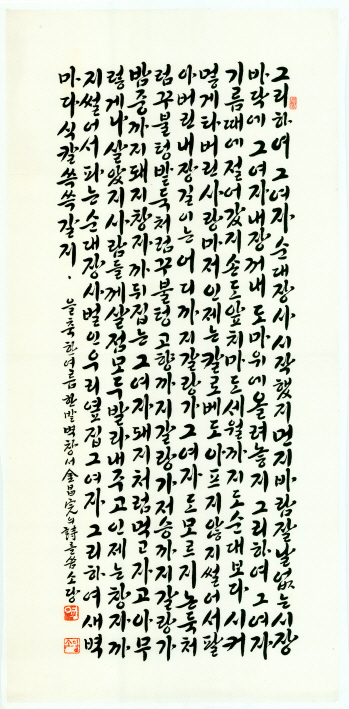 그리하여 그 여자 순대장사 시작했지 먼지바람 잘 날 없는 시장
바닥에 그 여자 내장 꺼내 도마위에 올려놓지 그리하여 그 여자
기름때에 절어갔지 손도 앞치마도 세월까지도 순대보다 시커
멓게 타버린 사랑마저 인제는 칼로 베도 아프지 않지 썰어서 팔
아버린 내장 길이는 어디까지 갈랑가 그 여자도 모르지 논둑처
럼 꾸불텅 밭둑처럼 꾸불텅 고향까지 갈랑가 저승까지 갈랑가
밤중까지 돼지창자까 뒤집는 그 여자 돼지처럼 먹고 자고 아무
렇게나 살았지 사람들께 살점 모두 발라내주고 인제는 창자까
지 썰어서 파는 순대장사 벌인 우리 옆집 그 여자 그리하여 새벽
마다 식칼 쓱쓱 갈지.
을축한여름 한밭벽창서 金昌完의 詩를 씀 소당